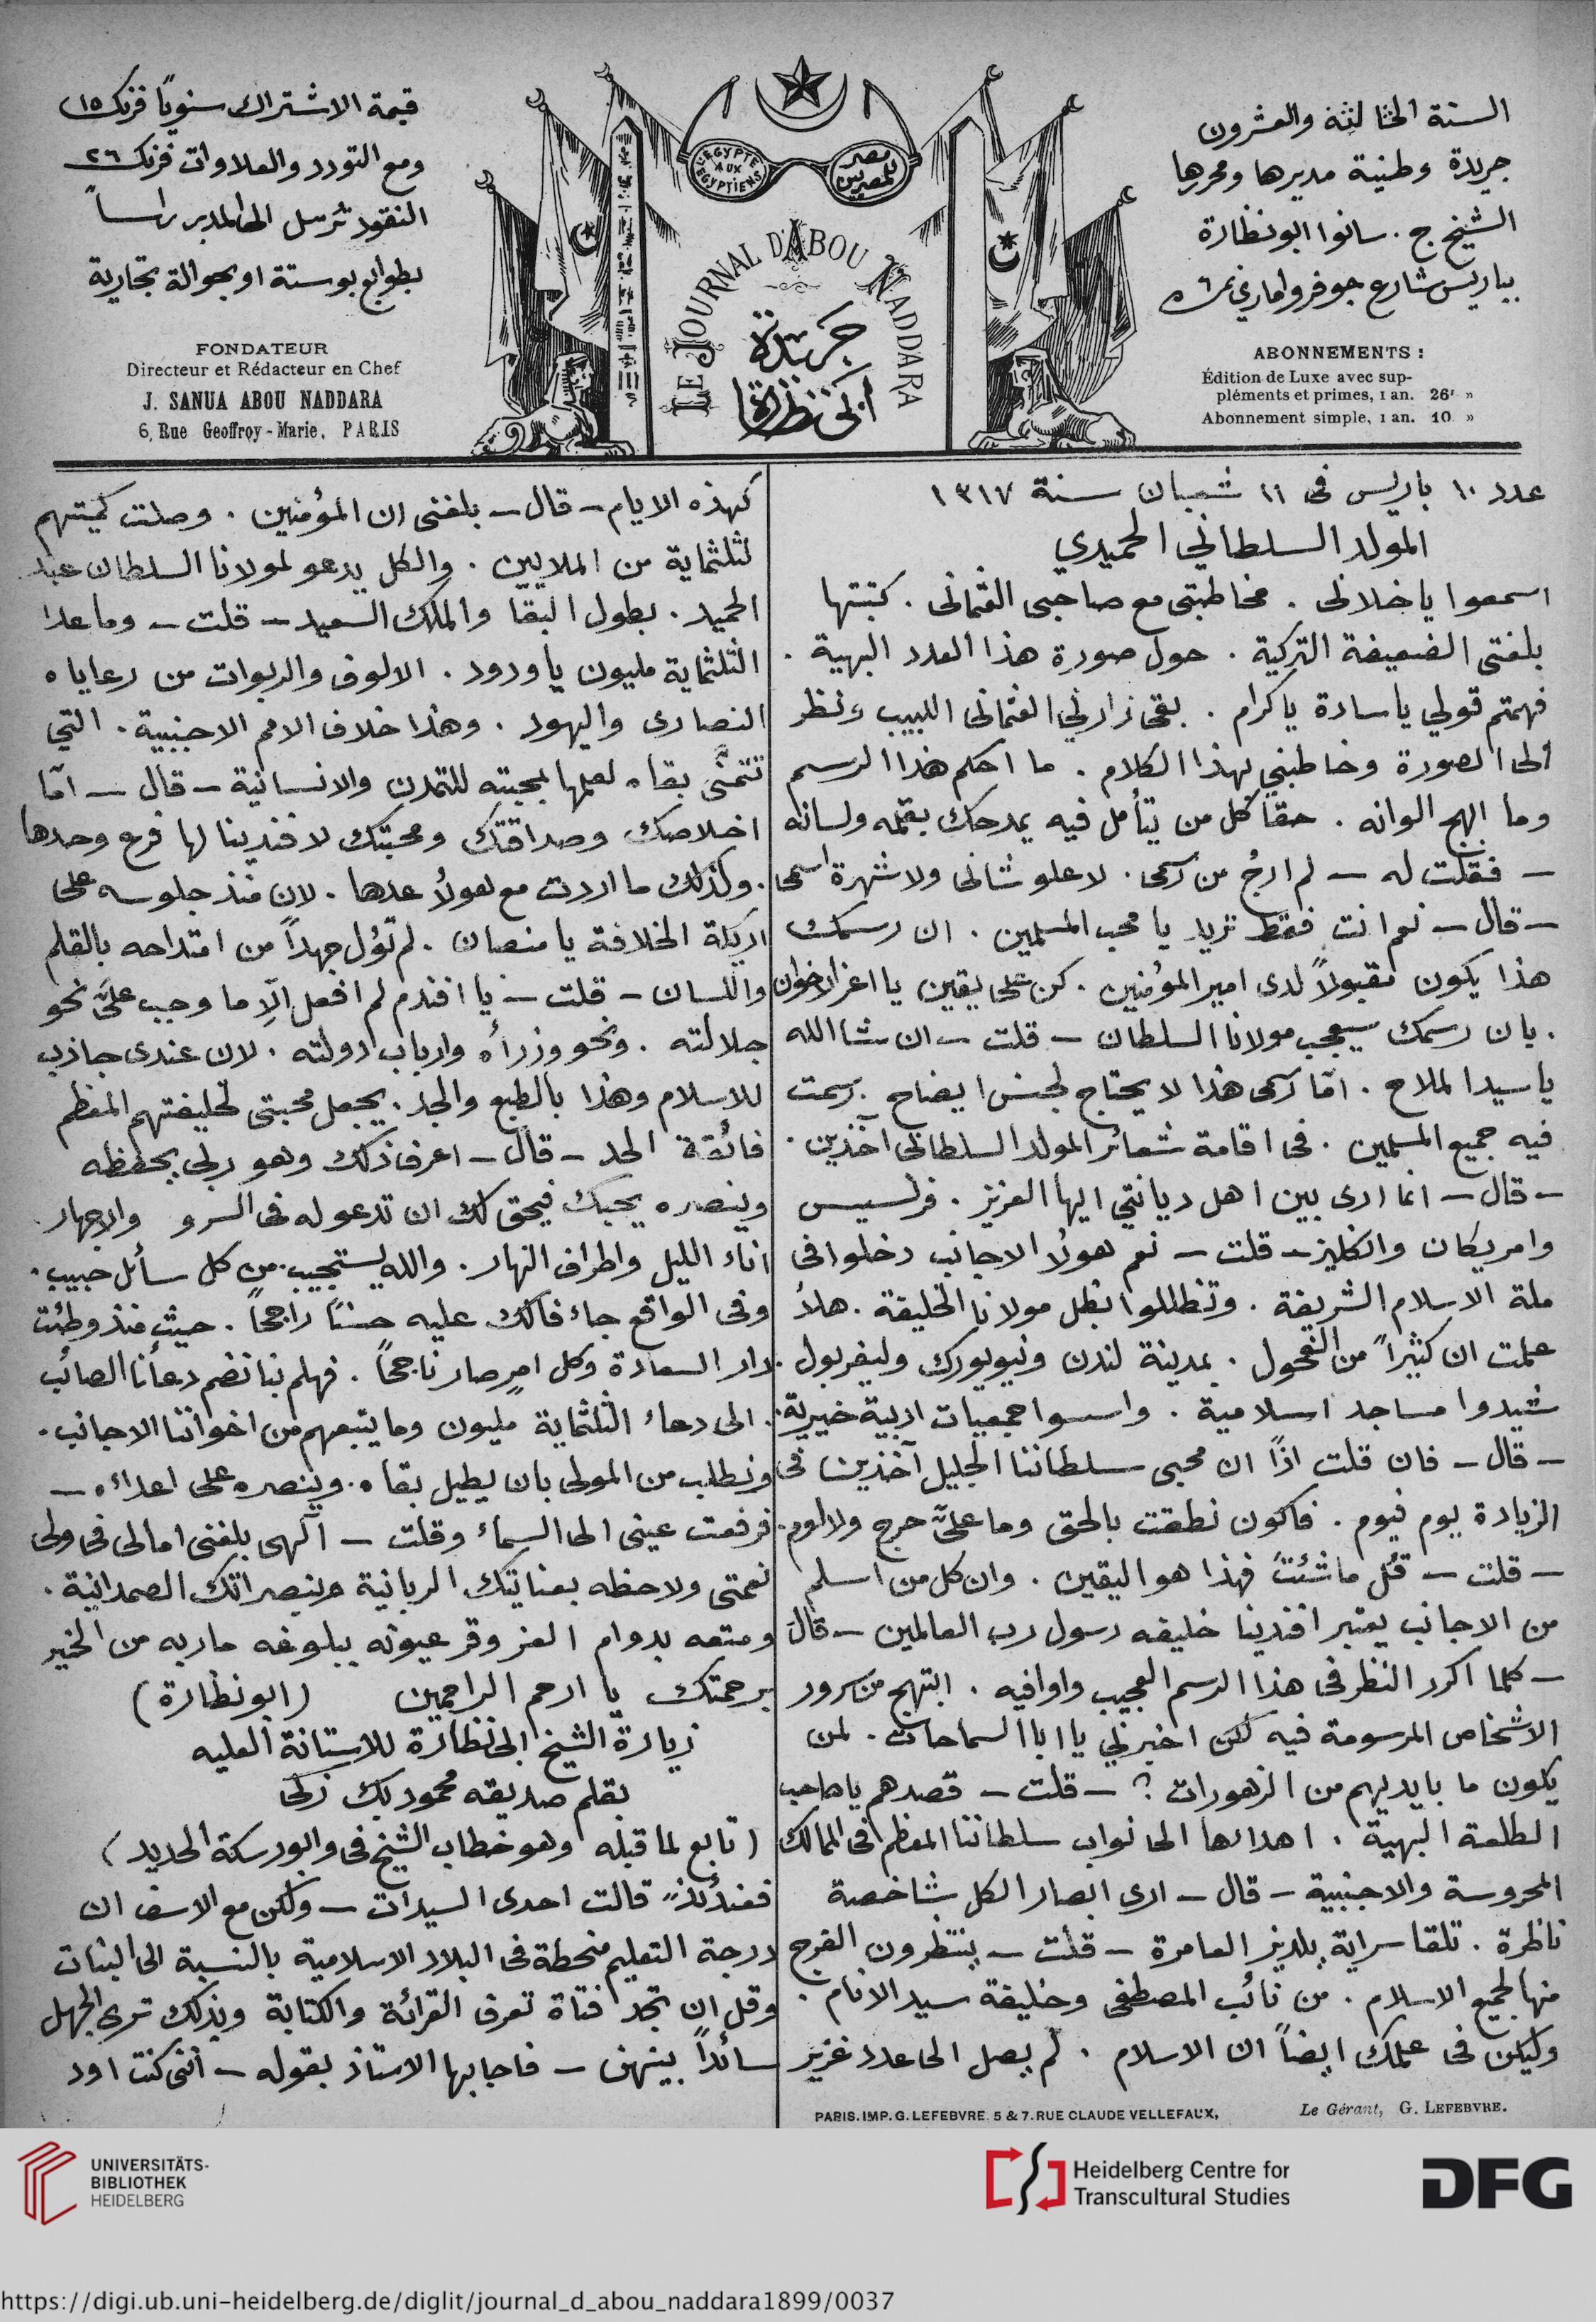 السنة الثالثة والعشرون
جريدة وطنية مديرها ومحررها
الشيخ ج. سانوا ابو نظارة
بباريس شارع جوفروا ماري نمرة ٦
ABONNEMENTS :
Édition de Luxe avec sup-
pléments et primes, 1 an. 26f »
Abonnement simple, 1 an. 10 »
L'EGYPTE AUX EGYPTIENS
مصر للمصريين
LE JOURNAL D'ABOU NADDARA
جريدة
ابي نظارة
قيمة الاشتراك سنويًا فرنك ١٥
ومع التورد والعلاوات فرنك ٢٦
النقود ترسل الى المدير راساً
بطوابع بوستة او بحوالة تجارية
FONDATEUR
Directeur et Rédacteur en Chef
J. SANUA ABOU NADDARA
6, Rue Geoffroy-Marie, PARIS
عدد ١٠ باريس فى ١١ شعبان سنة ١٣١٧
المولد السلطاني الحميدي
اسمعوا يا خلانى . مخاطبتى مع صاحبى العثمانى . كتبتها
بلغتى الضعيفة التركية . حول صورة هذا العدد البهية .
فهمتم قولي يا سادة يا كرام . بقى زارني العثمانى اللبيب ونظر
الى الصورة وخاطبني بهذا الكلام . ما احكم هذا الرسم
وما ابهج الوانه . حقا كل من يتأمل فيه يمدحك بقلمه ولسانه
— فقلت له — لم ارجُ من رسمى . لا علو شانى ولا شهرة اسمى
— قال — نعم انت فقط تريد يا محب المسلمين . ان رسمك
هذا يكون مقبولاً لدى امير المؤمنين . كن على يقين يا اعز الاخوان
. بان رسمك سيعجب مولانا السلطان — قلت — ان شا الله
يا سيد الملاح . امّا رسمى هذا لا يحتاج لحسن ايضاح . رسمت
فيه جميع المسلمين . فى اقامة شعائر المولد السلطانى آخذين .
— قال — انما ارى بين اهل ديانتي ايها العزيز . فرنسيس
وامريكان وانكليز — قلت — نعم هولاُ الاجانب دخلوا فى
ملة الاسلام الشريفة . وتظللوا بظل مولانا الخليفة . هلاّ
علمت ان كثيراً من الفحول . بمدينة لندن ونيويورك وليفربول
شيدوا مساجد اسلامية . واسسوا جمعيات ادبية خيرية .
— قال — فان قلت اذًا ان محبى سلطاننا الجليل آخذين فى
الزيادة يوم فيوم . فاكون نطقت بالحق وما علىَّ حرج ولا لوم
— قلت — قُل ما شئتَ فهذا هو اليقين . وان كل من اسلم
من الاجانب يعتبر افندينا خليفه رسول رب العالمين — قال
— كلما اكرر النظر فى هذا الرسم العجيب واوافيه . ابتهج من سرور
الاشخاص المرسومة فيه لكن اخبرني يا ابا السماحات . لمن
يكون ما بايديهم من الزهورات ؟ — قلت — قصدهم يا صاحب
الطلعة البهية . اهداها الى نواب سلطاننا المعظم فى الممالك
المحروسة والاجنبية — قال — ارى ابصار الكل شاخصة
ناظرة . تلقا سراية يلديز العامرة — قلت — ينتظرون الفرج
منها لجميع الاسلام . من نائب المصطفى وخليفة سيد الانام .
وليكن فى علمك ايضاً ان الاسلام . لم يصل الى عدد غزير
كهذه الايام — قال — بلغنى ان المؤمنين . وصلت كميتهم
لثلثماية من الملايين . والكل يدعو لمولانا السلطان عبد
الحميد . بطول البقا والملك السعيد — قلت — وما عدا
الثلثماية مليون يا ودود . الالوف والربوات من رعاياه
النصارى واليهود . وهذا خلاف الامم الاجنبية . التي
تتمنَّى بقاه لعلمها بمحبته للتمدن والانسانية — قال — امّا
اخلاصك وصداقتك ومحبتك لافندينا لها فرح وحدها
. وكذلك ما اردت مع هولاُ عدها . لان منذ جلوسه على
اريكة الخلافة يا منصان . لم تؤل جهداً من امتداحه بالقلم
واللسان — قلت — يا افندم لم افعل الّا ما وجب علىَّ نحو
جلالته . ونحو وزراُه وارباب دولته . لان عندى جاذب
للاسلام وهذا بالطبع والجد . يجعل محبتى لخليفتهم المعظم
فائقة الحد — قال — اعرف ذلك وهو ربى يحفظه
وينصره يحبك فيحق لك ان تدعو له فى السر و والاجهار .
اناء الليل واطراف النهار . والله يستجيب من كل سأئل حبيب .
وفى الواقع جاء فالك عليه حسنًا راجحًا . حيث منذ وطئت
دار السعادة وكل امرٍ صار ناجحًا . فهلم بنا نضم دعأنا الصائب
. الى دعاء الثلثماية مليون وما يتبعهم من اخواننا الاجانب .
ونطلب من المولى بان يطيل بقاه . وينصره على اعداءه —
فرفعت عينى الى السماء وقلت — آلهى بلغنى امالى فى ولى
نعمتى ولاحظه بعنايتك الربانية وبنصراتك الصمدانية .
ومتعه بدوام العز وقر عيونه ببلوغه مأربه من الخير
برحمتك يا ارحم الراحمين (ابو نظارة)
زيارة الشيخ ابى نظارة للاستانة العليه
بقلم صديقه محمود بك زكى
(تابع لما قبله وهو خطاب الشيخ فى والبورسكة الحديد)
فعندئذٍ قالت احدى السيدات — ولكن مع الاسف ان
درجة التعليم منحطة فى البلاد الاسلامية بالنسبة الى البنات
وقل ان تجد فتاة تعرف القرائة والكتابة وبذلك ترى الجهل
سائداً بينهن — فاجابها الاستاذ بقوله — اننى كنت اود
PARIS. IMP. G. LEFEBVRE. 5 & 7. RUE CLAUDE VELLEFAUX,
Le Gérant, G. LEFEBVRE.
UNIVERSITÄTS-
BIBLIOTHEK
HEIDELBERG
Heidelberg Centre for
Transcultural Studies
DFG
https://digi.ub.uni-heidelberg.de/diglit/journal_d_abou_naddara1899/0037